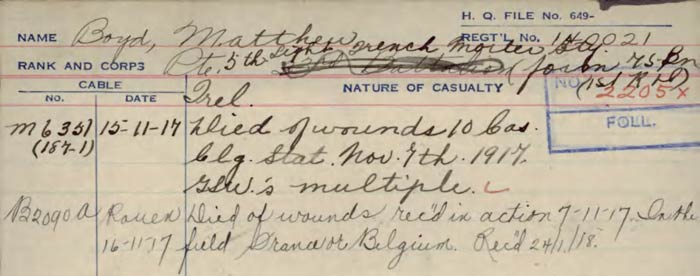 H. Q. FILE NO. 649-
NAME Boyd, Matthew REGT'L NO. 140021
RANK AND CORPS Pte. 5th Light Trench Mortar Bty. form 75 Bn
CABLE
NO. DATE NATURE OF CASUALTY
Irel. (1st R I D)
NO 2205x
FOLL.
M6351 15-11-17 Died of wounds 10 Cas.
(187-1) Clg. Stat. Nov. 7th. 1917.
GSW's multiple.
B2090A Rouen Died of wounds rec'd in action 7-11-17. In the
16-11-17 field France or Belgium. Rec'd 24/1/18.